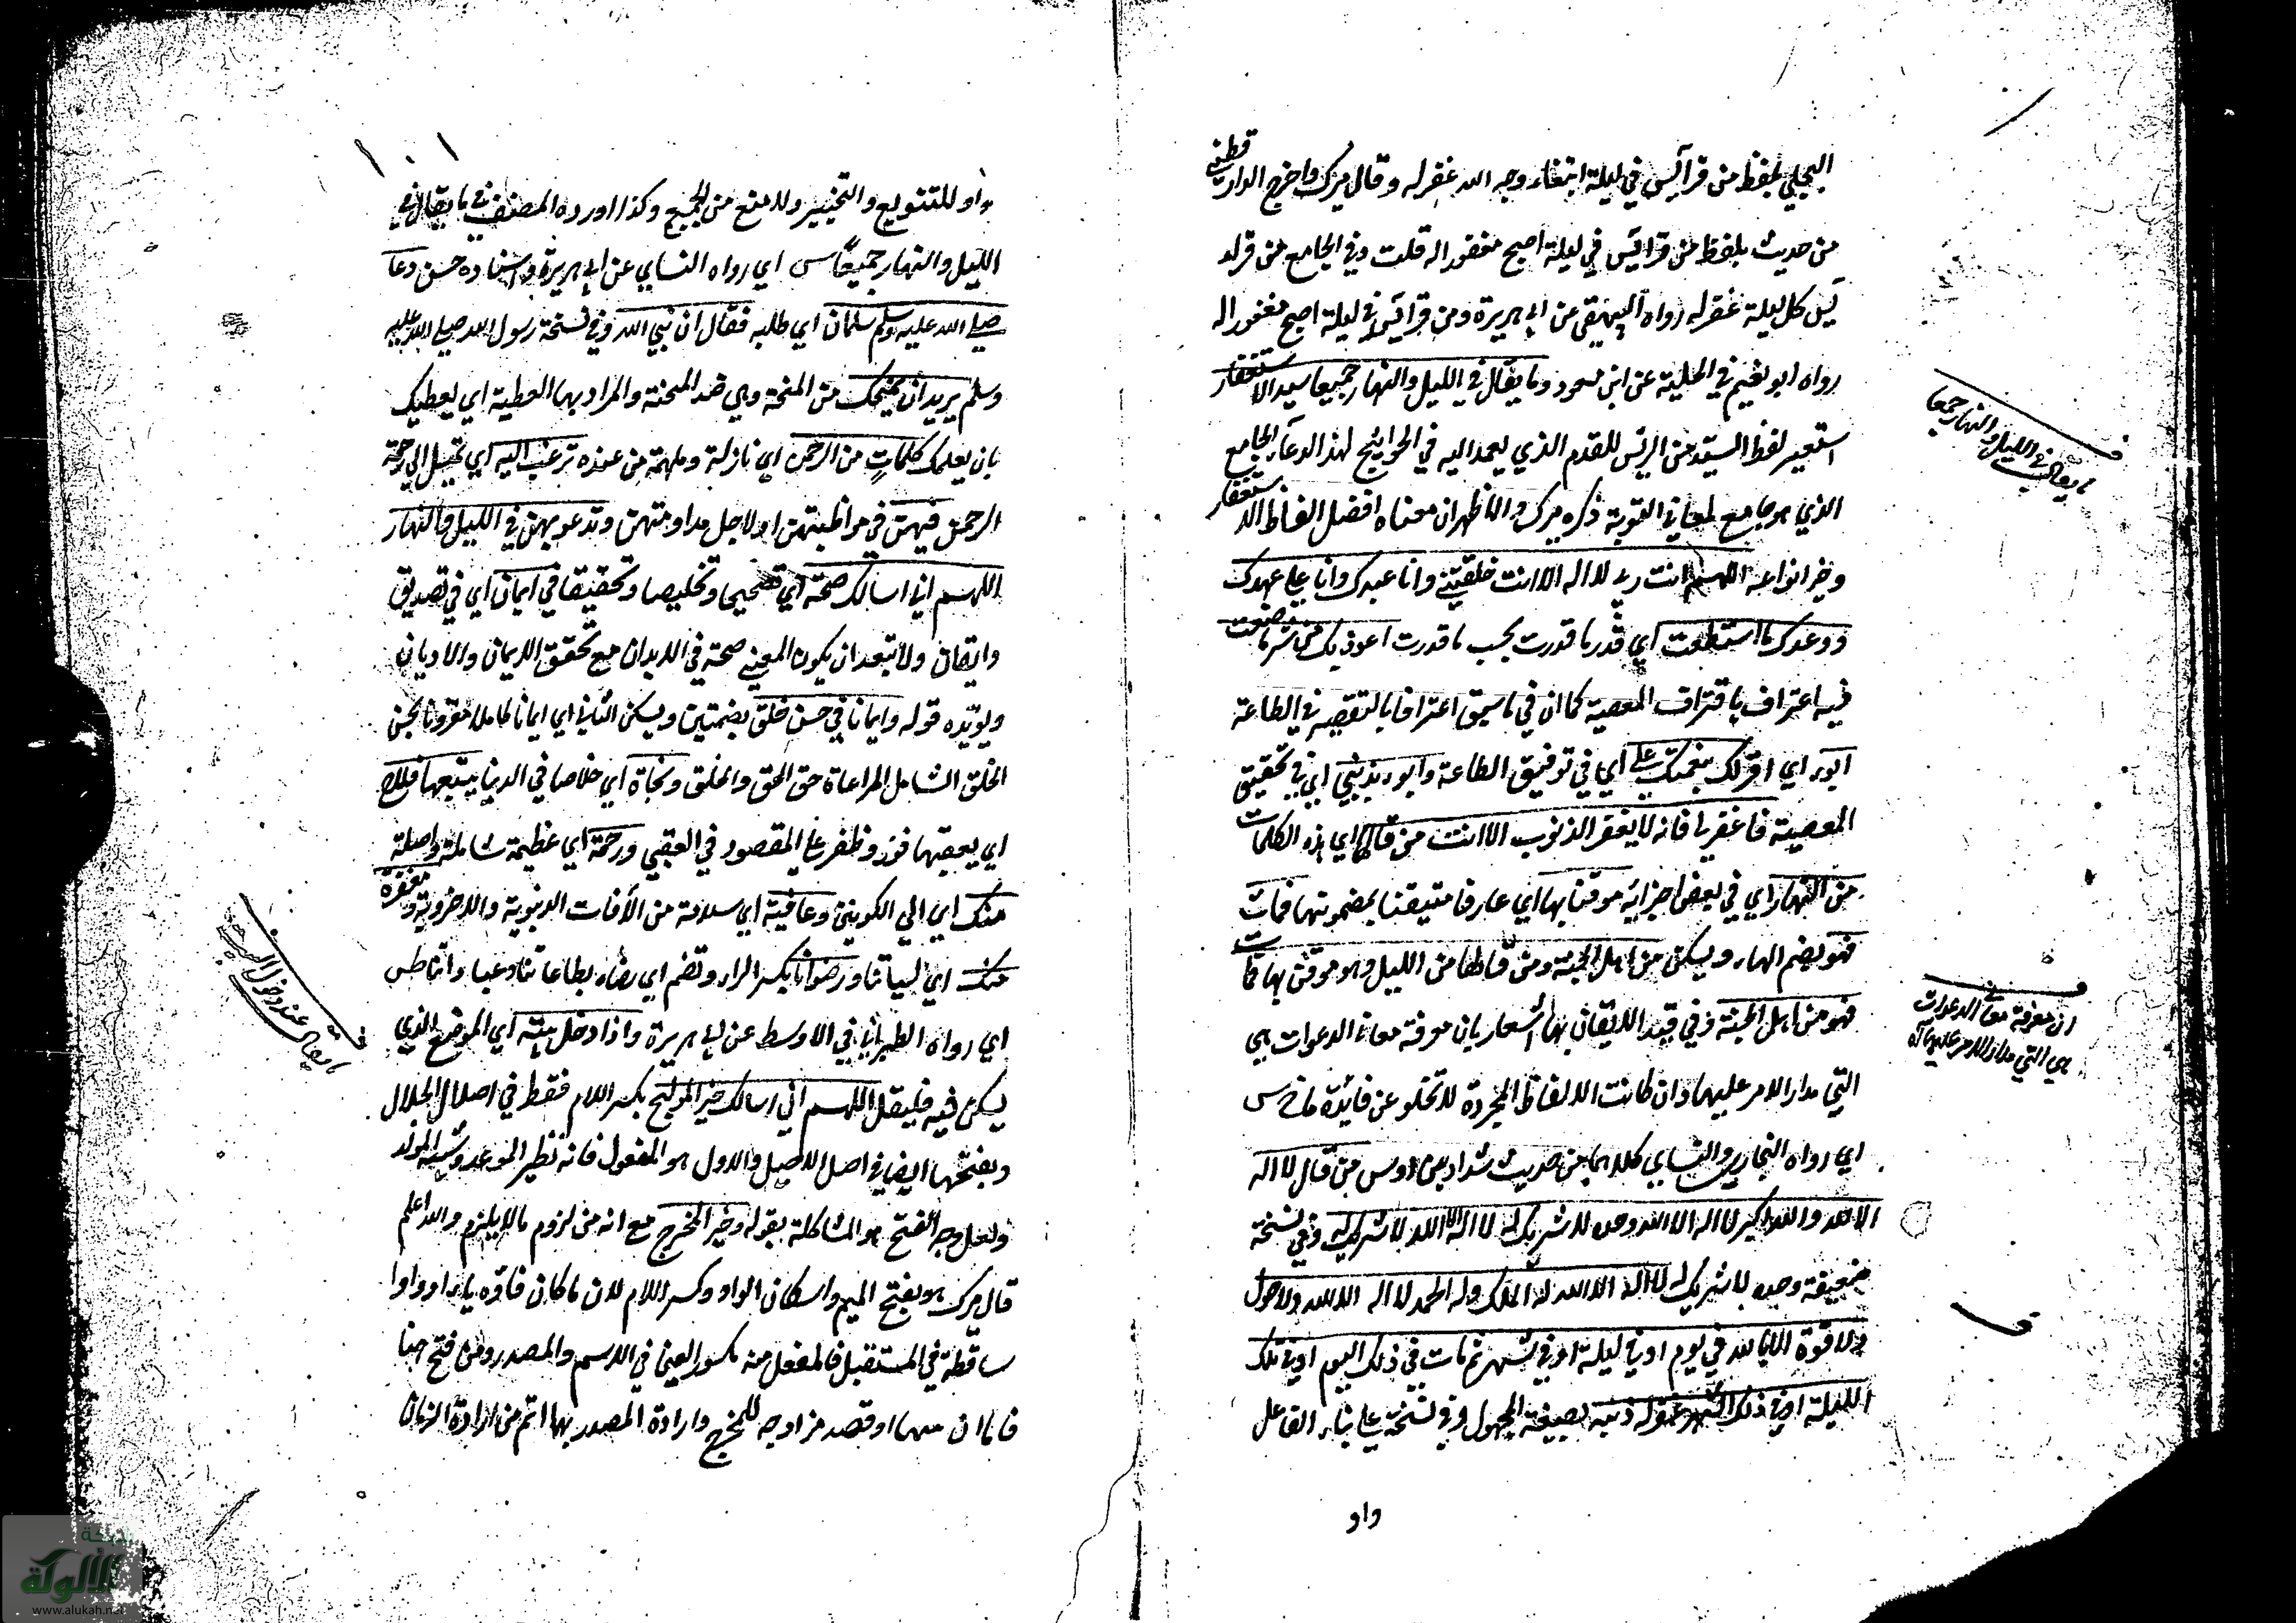 البجلي بلفظ من قرأ يس في ليلة ابتغاء وجه الله غفر له وقال ميرك واخرج الدارقطني
من حديث بلفظ من قرا يس في ليلة اصبح مغفورا له قلت وفي الجامع من قرا
يس كل ليلة غفر له رواه البيهقي عن ابي هريرة ومن قرا يس في ليلة اصبح مغفورا له
رواه ابو نعيم في الحلية عن ابن مسعود وما يقال في الليل والنهار جميعا سيد الاستغفار
استعير لفظ السيد من الرئيس المقدم الذي يعمد اليه في الحوايج لهذا الدعاء الجامع
الذي هو جامع لمعاني التوبة ذكره ميرك والاظهر ان معناه افضل الفاظ الاستغفار
وخير انواعه اللهم انت ربي لا اله الا انت خلقتني وانا عبدك وانا على عهدك
ووعدك ما استطعت اي قدر ما قدرت بحسب ما قدرت اعوذ بك من شر ما صنعت
فيه اعتراف باقتراف المعصية كما ان في ما سبق اعترافا بالتقصير في الطاعة
ابوء اي اقر لك بنعمتك علي اي في توفيق الطاعة وابوء بذنبي اي في تحقيق
المعصية فاغفر لي فانه لا يغفر الذنوب الا انت من قالها اي هذه الكلمات
من النهار اي في بعض اجزايه موقنا بها اي عارفا متيقنا بمضمونها فمات
فهو بضم الهاء ويسكن من اهل الجنة ومن قالها من الليل وهو موقن بها فمات
فهو من اهل الجنة وفي قيد الايقان بها اشعار بان معرفة معاني الدعوات هي
التي مدار الامر عليها وان كانت الالفاظ المجردة لا تخلو عن فائدة ما خ س
اي رواه البخاري والنسايي كلاهما من حديث شداد بن اوس من قال لا اله
الا الله والله اكبر لا اله الا الله وحده لا شريك له لا اله الا الله لا شريك له وفي نسخة
ضعيفة وحده لا شريك له لا اله الا الله له الملك وله الحمد لا اله الا الله ولا حول
ولا قوة الا بالله في يوم او في ليلة او في شهر ثم مات في ذلك اليوم او في تلك
الليلة او في ذلك الشهر غفر له ذنبه بصيغة المجهول وفي نسخة على بناء الفاعل
واو
ما يقال في الليل والنهار جميعا
ان معرفة معاني الدعوات
هي التي مدار الامر عليها
١٠١
واو للتنويع والتخيير ولا منع من الجمع وكذا اورده المصنف في ما يقال في
الليل والنهار جميعا س اي رواه النسايي عن ابي هريرة واسناده حسن دعا
صلى الله عليه وسلم سلمان اي طلبه فقال ان نبي الله وفي نسخة رسول الله صلى الله عليه
وسلم يريد ان يمنحك من المنحة وهي ضد المحنة والمراد بها العطية اي يعطيك
بان يعلمك كلمات من الرحمن اي نازلة وملهمة من عنده ترغب اليه اي تميل الى رحمة
الرحمن فيهن في مواظبتهن او لاجل مداومتهن وتدعو بهن في الليل والنهار
اللهم اني اسالك صحة اي تصحيحا وتخليصا وتحقيقا في ايمان اي في تصديق
وايقان ولا يبعد ان يكون المعنى صحة في الابدان مع تحقق الايمان والاديان
ويؤيده قوله وايمانا في حسن خلق بضمتين ويسكن الثاني اي ايمانا كاملا مقرونا بحسن
الخلق الشامل لمراعاة حق الحق والخلق ونجاة اي خلاصا في الدنيا يتبعها فلاح
اي يعقبها فوز وظفر على المقصود في العقبى ورحمة اي عظيمة شاملة واصلة
منك اي الى الكونين وعافية اي سلامة من الآفات الدنيوية والاخروية ومغفرة
منك اي لسيآتنا ورضوانا بكسر الراء وتضم اي رضاء بطاعاتنا وعباداتنا طس
اي رواه الطبراني في الاوسط عن ابي هريرة واذا دخل بيته اي الموضع الذي
يسكن فيه فليقل اللهم اني اسالك خير المولج بكسر اللام فقط في اصل الجلال
وبفتحها ايضا في اصل الاصيل والاول هو المنقول فانه نظير الموعد وشبه المولد
ولعل وجه الفتح هو المشاكلة بقوله وخير المخرج مع انه من لزوم ما لا يلزم والله اعلم
قال ميرك هو بفتح الميم واسكان الواو وكسر اللام لان ما كان فاؤه ياء او واوا
ساقطة في المستقبل فالمفعل منه مكسور العين في الاسم والمصدر ومن فتح هنا
فاما ان سها او قصد مزاوجه للمخرج وارادة المصدر بها اتم من ارادة الزمان
ما يقال عند دخول البيت
شبكة
الألوكة
www.alukah.net